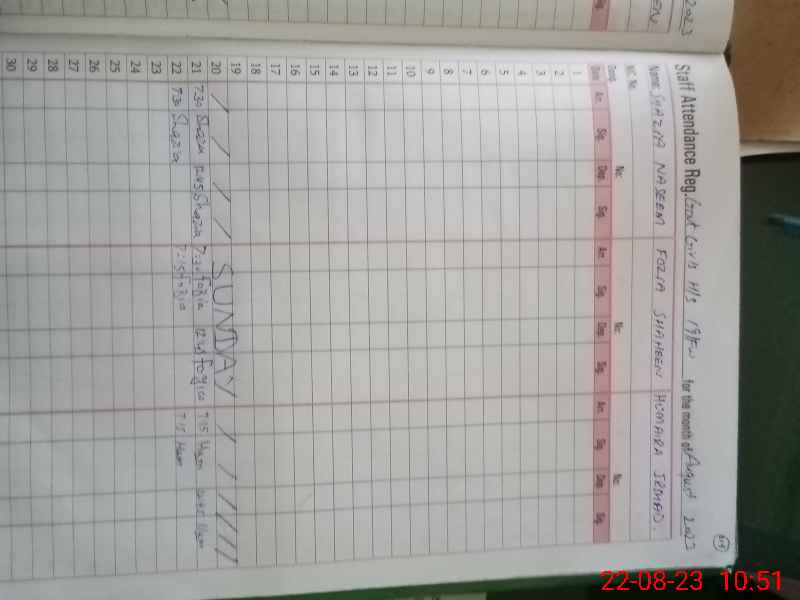 2023
Staff Attendance Reg. Govt Girls H/S 19/FW for the month of August 2023
Name SHAZIA NASEEM FOZIA SHAHEEN HUMAIRA IRSHAD.
NIC No. No: No: No:
Date Arr. Sig. Dep. Sig. Arr. Sig. Dep. Sig. Arr. Sig. Dep. Sig.
1
2
3
4
5
6
7
8
9
10
11
12
13
14
15
16
17
18
19
20 SUNDAY
21 7:30 Shazia 12:45 Shazia Fozia Fozia 7:15 Hum Hum
22 7:30 Shazia 7:15 Fozia 7:15 Hum
23
24
25
26
27
28
29
30
22-08-23 10:51